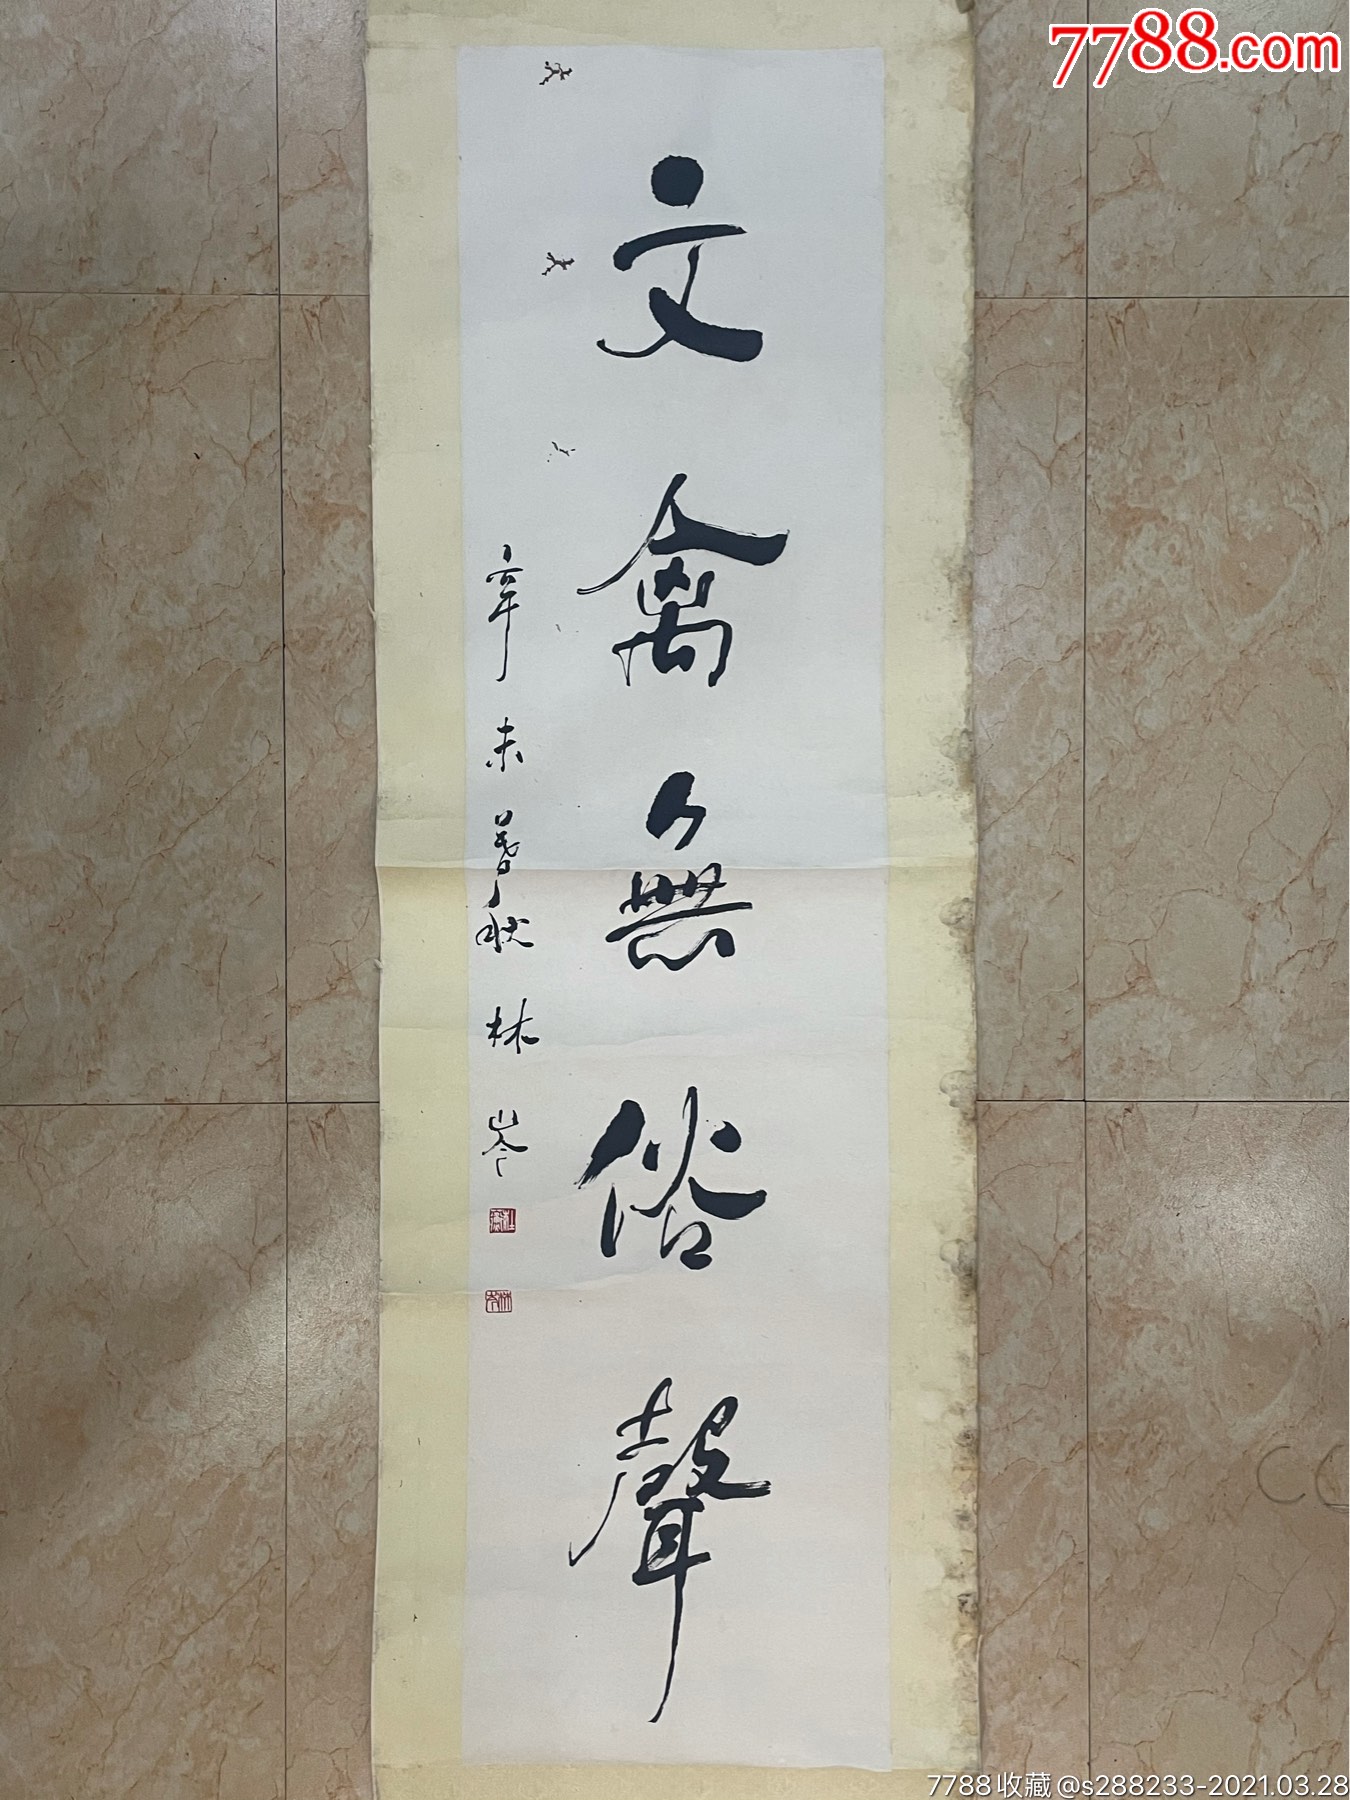 7788.com
文禽無俗聲
辛未暮秋林岑
7788收藏@s288233-2021.03.28